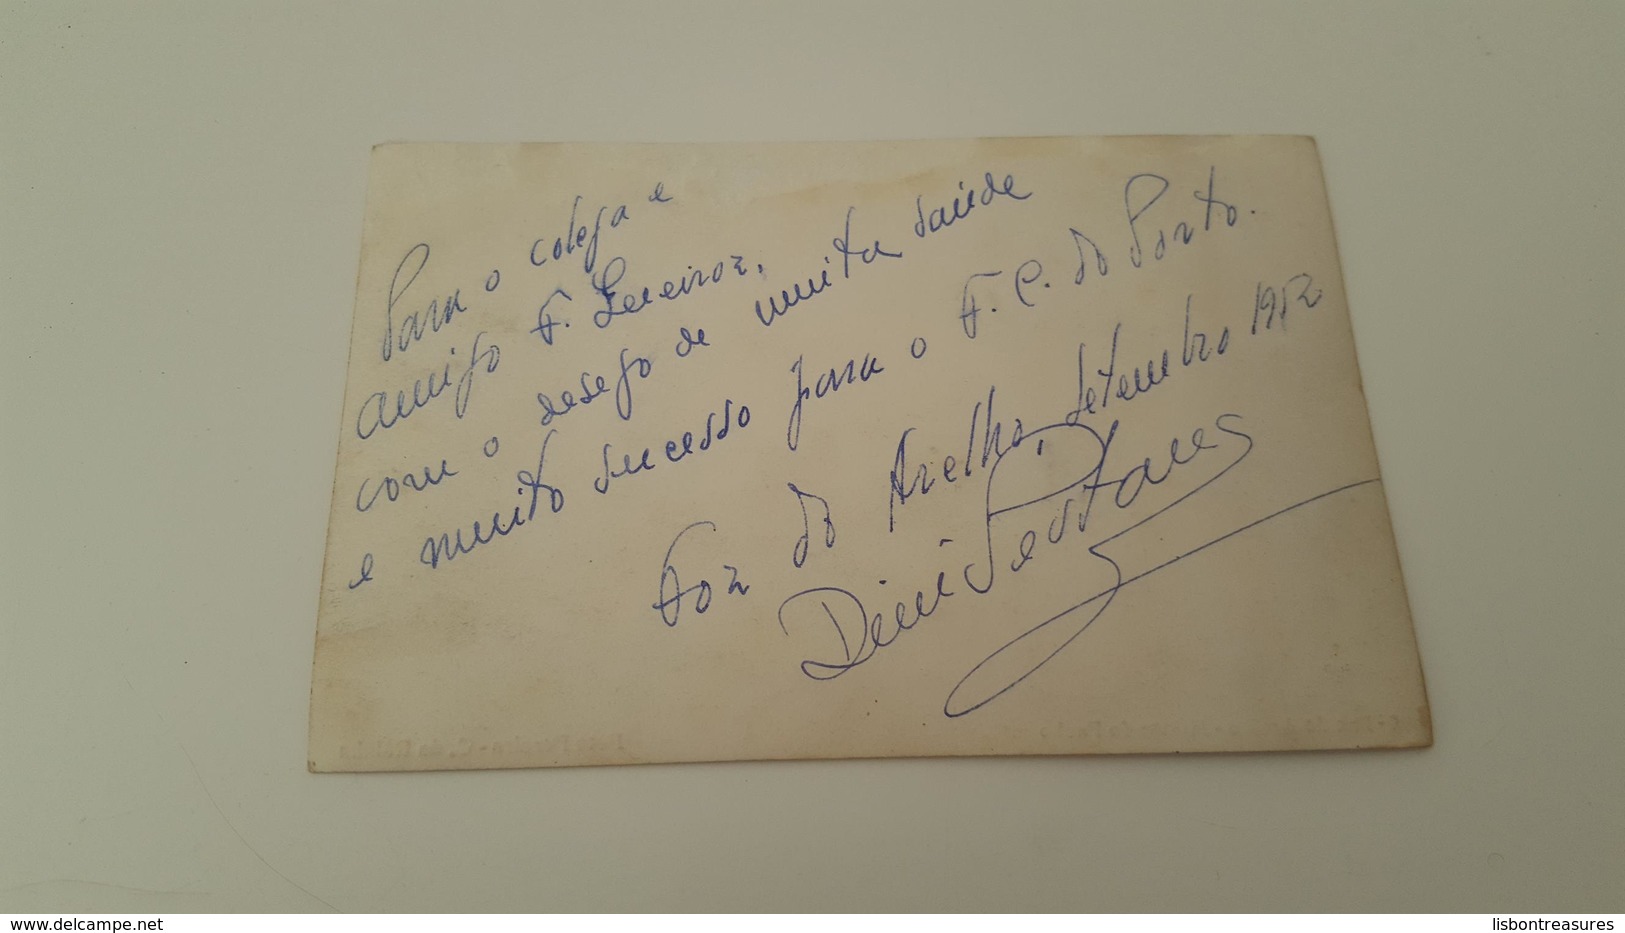 Para o colega e
amigo F.
com o desejo de muita saúde
e muito sucesso para o F. C. do Porto.
Foz do Arelho, Setembro 1952
http://www.delcampe.net
lisbontreasures